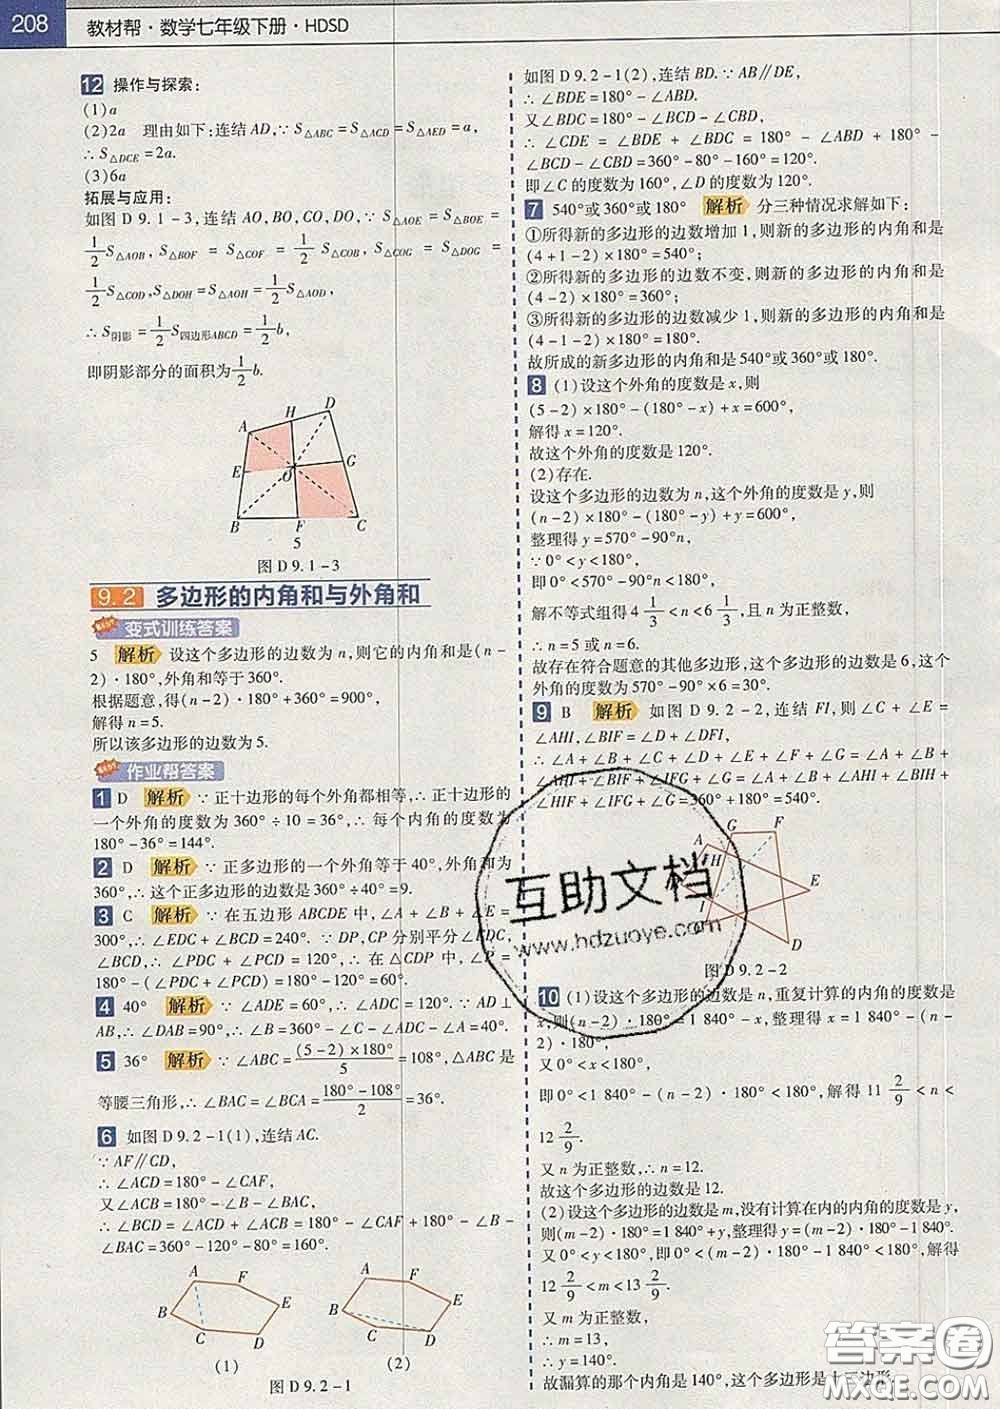 208
教材帮·数学七年级下册·HDSD
12 操作与探索:
(1)a
(2)2a 理由如下:连结AD,∵S△ABC=S△ACD=S△AED=a,
∴S△DCE=2a.
(3)6a
拓展与应用:
如图D9.1-3,连结AO,BO,CO,DO,∵S△AOE=S△BOE=
1/2 S△AOB,S△BOF=S△COF=1/2 S△BOC,S△COG=S△DOG=
1/2 S△COD,S△DOH=S△AOH=1/2 S△AOD,
∴S阴影=1/2 S四边形ABCD=1/2 b,
即阴影部分的面积为1/2 b.
H D
A
E O G
B F C
5
图D9.1-3
9.2 多边形的内角和与外角和
变式训练答案
5 解析 设这个多边形的边数为n,则它的内角和是(n-
2)·180°,外角和等于360°.
根据题意,得(n-2)·180°+360°=900°,
解得n=5.
所以该多边形的边数为5.
作业帮答案
1 D 解析 ∵正十边形的每个外角都相等,∴正十边形的
一个外角的度数为360°÷10=36°,∴每个内角的度数为
180°-36°=144°.
2 D 解析 ∵正多边形的一个外角等于40°,外角和为
360°,∴这个正多边形的边数是360°÷40°=9.
3 C 解析 ∵在五边形ABCDE中,∠A+∠B+∠E=
300°,∴∠EDC+∠BCD=240°.∵DP,CP分别平分∠EDC,
∠BCD,∴∠PDC+∠PCD=120°,∴在△CDP中,∠P=
180°-(∠PDC+∠PCD)=180°-120°=60°.
4 40° 解析 ∵∠ADE=60°,∴∠ADC=120°.∵AD⊥
AB,∴∠DAB=90°,∴∠B=360°-∠C-∠ADC-∠A=40°.
5 36° 解析 ∵∠ABC=(5-2)×180°/5=108°,△ABC是
等腰三角形,∴∠BAC=∠BCA=180°-108°/2=36°.
6 如图D9.2-1(1),连结AC.
∵AF∥CD,
∴∠ACD=180°-∠CAF,
又∠ACB=180°-∠B-∠BAC,
∴∠BCD=∠ACD+∠ACB=180°-∠CAF+180°-∠B-
∠BAC=360°-120°-80°=160°.
A F E B C D
(1)
A F E B C D
(2)
图D9.2-1
如图D9.2-1(2),连结BD.∵AB∥DE,
∴∠BDE=180°-∠ABD.
又∠BDC=180°-∠BCD-∠CBD,
∴∠CDE=∠BDE+∠BDC=180°-∠ABD+180°-
∠BCD-∠CBD=360°-80°-160°=120°.
即∠C的度数为160°,∠D的度数为120°.
7 540°或360°或180° 解析 分三种情况求解如下:
①所得新的多边形的边数增加1,则新的多边形的内角和是
(4+1-2)×180°=540°;
②所得新的多边形的边数不变,则新的多边形的内角和是
(4-2)×180°=360°;
③所得新的多边形的边数减少1,则新的多边形的内角和是
(4-1-2)×180°=180°.
故所成的新多边形的内角和是540°或360°或180°.
8 (1)设这个外角的度数是x,则
(5-2)×180°-(180°-x)+x=600°,
解得x=120°.
故这个外角的度数是120°.
(2)存在.
设这个多边形的边数为n,这个外角的度数是y,则
(n-2)×180°-(180°-y)+y=600°,
整理得y=570°-90°n,
∵0°<y<180°,
即0°<570°-90°n<180°,
解不等式组得4 1/3<n<6 1/3,且n为正整数,
∴n=5或n=6.
故存在符合题意的其他多边形,这个多边形的边数是6,这个
外角的度数为570°-90°×6=30°.
9 B 解析 如图D9.2-2,连结FI,则∠C+∠E=
∠AHI,∠BIF=∠D+∠DFI,
∴∠A+∠B+∠C+∠D+∠E+∠F+∠G=∠A+∠B+
∠AHI+∠BIF+∠IFG+∠G=∠A+∠B+∠AHI+∠BIH
+∠HIF+∠IFG+∠G=360°+180°=540°.
G F
A
H
E
I
D
图D9.2-2
10 (1)设这个多边形的边数是n,重复计算的内角的度数是
x,则(n-2)·180°=1 840°-x,整理得x=1 840°-(n-
2)·180°,
又0°<x<180°,
即0°<1 840°-(n-2)·180°<180°,解得11 2/9<n<
12 2/9.
又n为正整数,∴n=12.
故这个多边形的边数是12.
(2)设这个多边形的边数是m,没有计算在内的内角的度数是y,
则(m-2)·180°=1 840°+y,整理得y=(m-2)·180°-1 840°.
又0°<y<180°,即0°<(m-2)·180°-1 840°<180°,解得
12 2/9<m<13 2/9.
又m为正整数,
∴m=13,
∴y=140°.
故漏算的那个内角是140°,这个多边形是十三边形.
互助文档
www.hdzuoye.com
答案圈
MXQE.COM